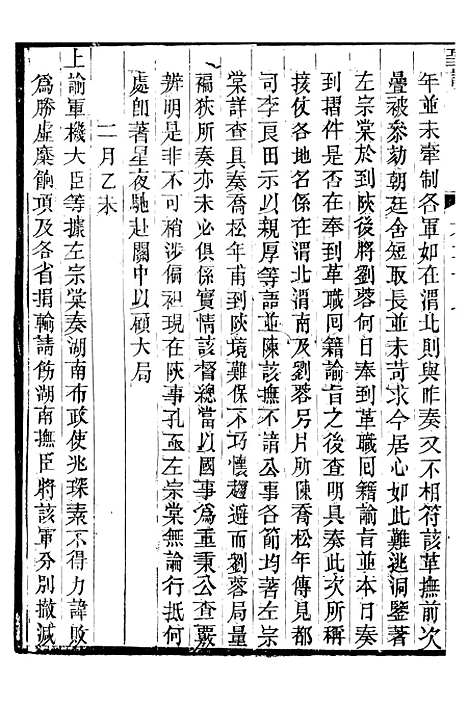 年並未牽制各軍如在渭北則與昨奏又不相符該革撫前次
疊被參劾朝廷舍短取長並未苛求今居心如此難逃洞鑒著
左宗棠於到陝後將劉蓉何日奉到革職回籍諭旨並本日奏
到摺件是否在奉到革職回籍諭旨之後查明具奏此次所稱
接仗各地名係在渭北渭南及劉蓉另片所陳喬松年傳見都
司李良田示以親厚等語並陳該撫不諳公事各節均著左宗
棠詳查具奏喬松年甫到陝境難保不巧懷趨避而劉蓉局量
褊狹所奏亦未必俱係實情該督總當以國事為重秉公查覈
辨明是非不可稍涉偏袒現在陝事孔亟左宗棠無論行抵何
處卽著星夜馳赴關中以顧大局
二月乙未
上諭軍機大臣等據左宗棠奏湖南布政使兆琛素不得力諱敗
為勝虛糜餉項及各省捐輸請飭湖南撫臣將該軍分別撤減